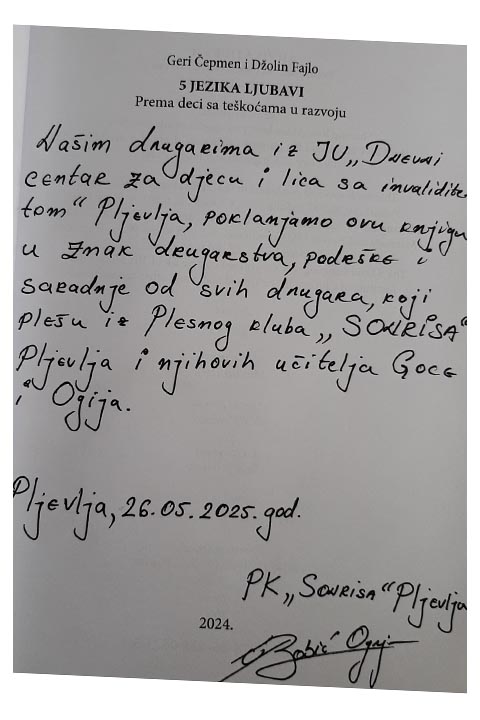 Geri Čepmen i Džolin Fajlo
5 JEZIKA LJUBAVI
Prema deci sa teškoćama u razvoju
Našim drugarima iz JU „Dnevni
centar za djecu i lica sa invalidite
tom“ Pljevlja, poklanjamo ovu knjigu
u znak drugarstva, podrške i
saradnje od svih drugara, koji
plešu iz Plesnog kluba „SONRISA“
Pljevlja i njihovih učitelja Goce
i Ogija.
Pljevlja, 26.05.2025.god.
PK „SONRISA“ Pljevlja
2024.
Babić